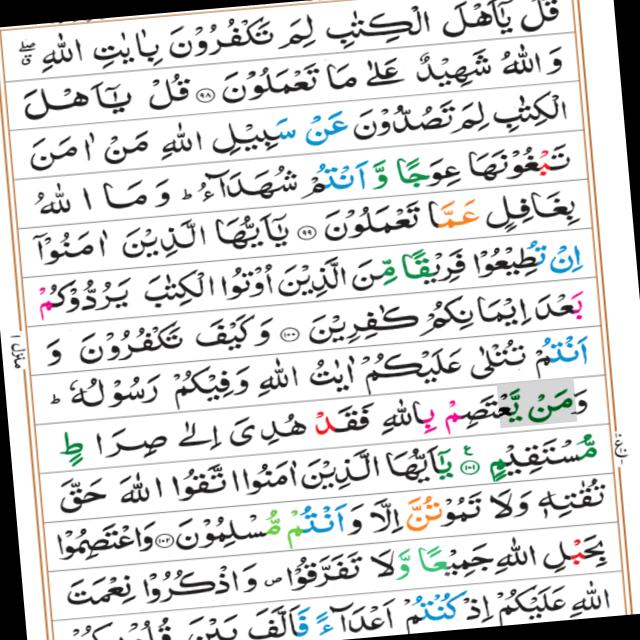 قُلْ يٰۤاَهْلَ الْكِتٰبِ لِمَ تَكْفُرُوْنَ بِاٰيٰتِ اللّٰهِ ۖق
وَ اللّٰهُ شَهِيْدٌ عَلٰى مَا تَعْمَلُوْنَ ۝۹۸ قُلْ يٰۤاَهْلَ
الْكِتٰبِ لِمَ تَصُدُّوْنَ عَنْ سَبِيْلِ اللّٰهِ مَنْ اٰمَنَ
تَبْغُوْنَهَا عِوَجًا وَّ اَنْتُمْ شُهَدَآءُ ؕ وَ مَا اللّٰهُ
بِغَافِلٍ عَمَّا تَعْمَلُوْنَ ۝۹۹ يٰۤاَيُّهَا الَّذِيْنَ اٰمَنُوْۤا
اِنْ تُطِيْعُوْا فَرِيْقًا مِّنَ الَّذِيْنَ اُوْتُوا الْكِتٰبَ يَرُدُّوْكُمْ
بَعْدَ اِيْمَانِكُمْ كٰفِرِيْنَ ۝۱۰۰ وَ كَيْفَ تَكْفُرُوْنَ وَ
اَنْتُمْ تُتْلٰى عَلَيْكُمْ اٰيٰتُ اللّٰهِ وَ فِيْكُمْ رَسُوْلُهٗ ؕ
وَ مَنْ يَّعْتَصِمْ بِاللّٰهِ فَقَدْ هُدِىَ اِلٰى صِرَاطٍ
مُّسْتَقِيْمٍ ۝۱۰۱ يٰۤاَيُّهَا الَّذِيْنَ اٰمَنُوا اتَّقُوا اللّٰهَ حَقَّ
تُقٰتِهٖ وَلَا تَمُوْتُنَّ اِلَّا وَ اَنْتُمْ مُّسْلِمُوْنَ ۝۱۰۲ وَ اعْتَصِمُوْا
بِحَبْلِ اللّٰهِ جَمِيْعًا وَّ لَا تَفَرَّقُوْا ص وَ اذْكُرُوْا نِعْمَتَ
اللّٰهِ عَلَيْكُمْ اِذْ كُنْتُمْ اَعْدَآءً فَاَلَّفَ بَيْنَ قُلُوْبِكُمْ
منزل ۱